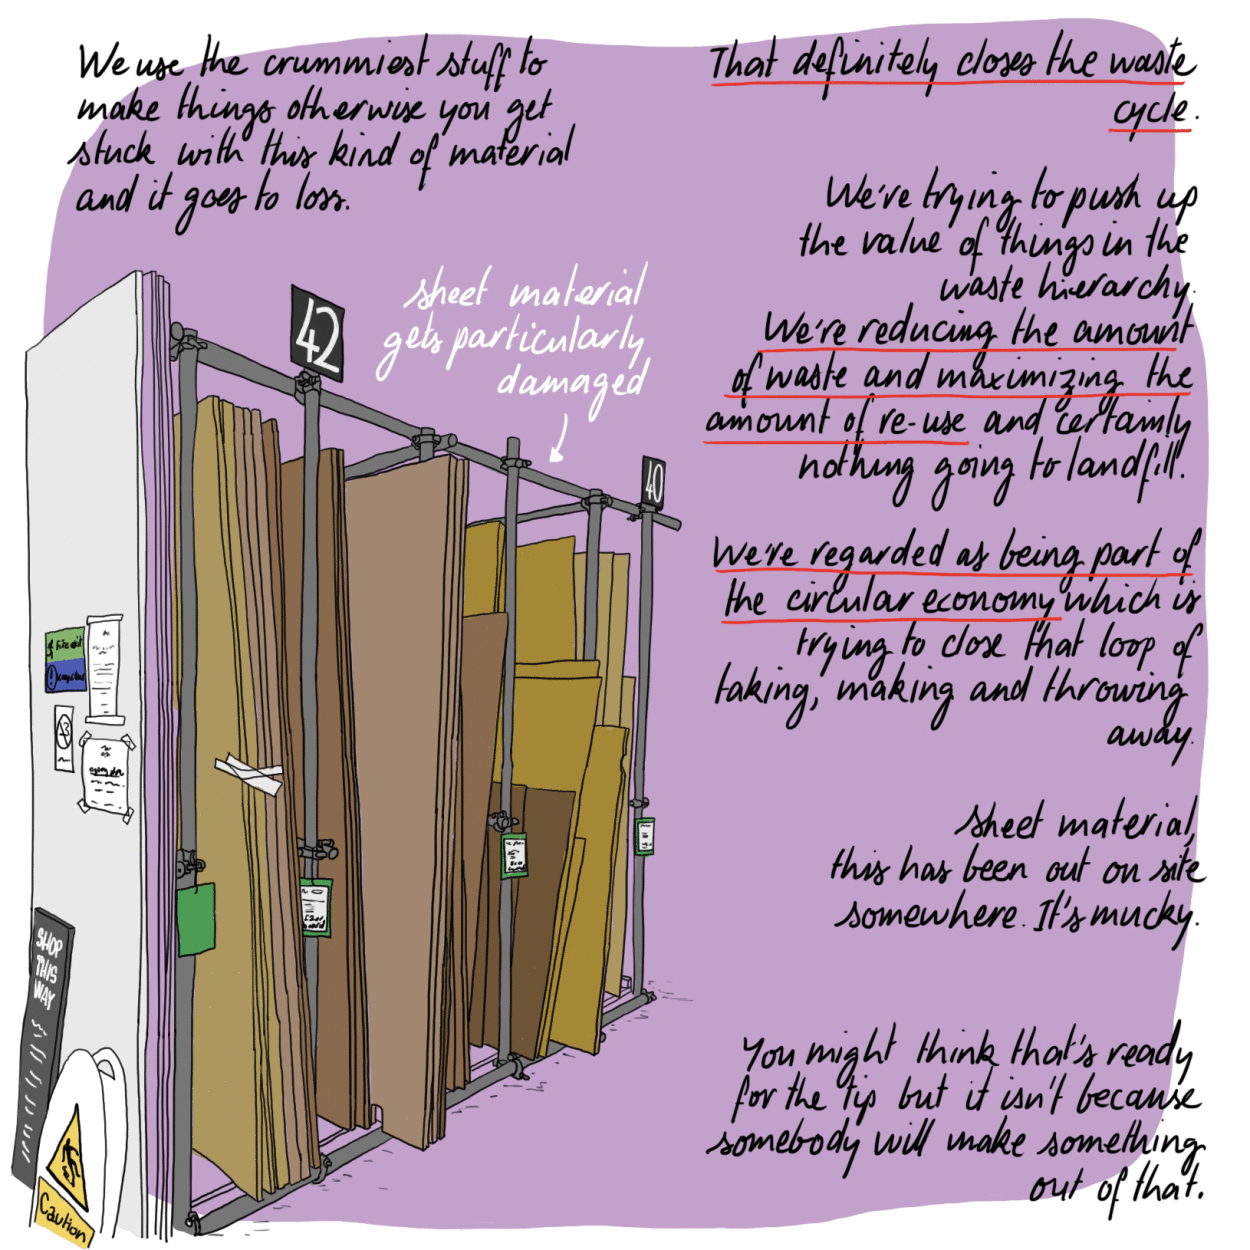 We use the crummiest stuff to
make things otherwise you get
stuck with this kind of material
and it goes to loss.
That definitely closes the waste
cycle.
We're trying to push up
the value of things in the
waste hierarchy.
We're reducing the amount
of waste and maximizing the
amount of re-use and certainly
nothing going to landfill.
We're regarded as being part of
the circular economy which is
trying to close that loop of
taking, making and throwing
away.
Sheet material,
this has been out on site
somewhere. It's mucky.
You might think that's ready
for the tip but it isn't because
somebody will make something
out of that.
sheet material
gets particularly
damaged
42
40
Fire exit
SHOP
THIS
WAY
Caution